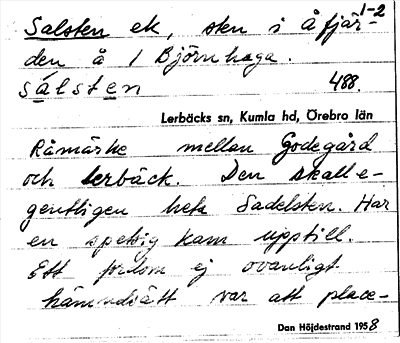 1-2
Salsten ek, sten i å fjär-
den å 1 Björnhaga.
sálsten 488.
Lerbäcks sn, Kumla hd, Örebro län
Råmärke mellan Godegård
och Lerbäck. Den skall e-
gentligen heta Sadelsten. Har
en spetsig kam upptill.
Ett fordom ej ovanligt
hämndsätt var att place-
Dan Höjdestrand 1958